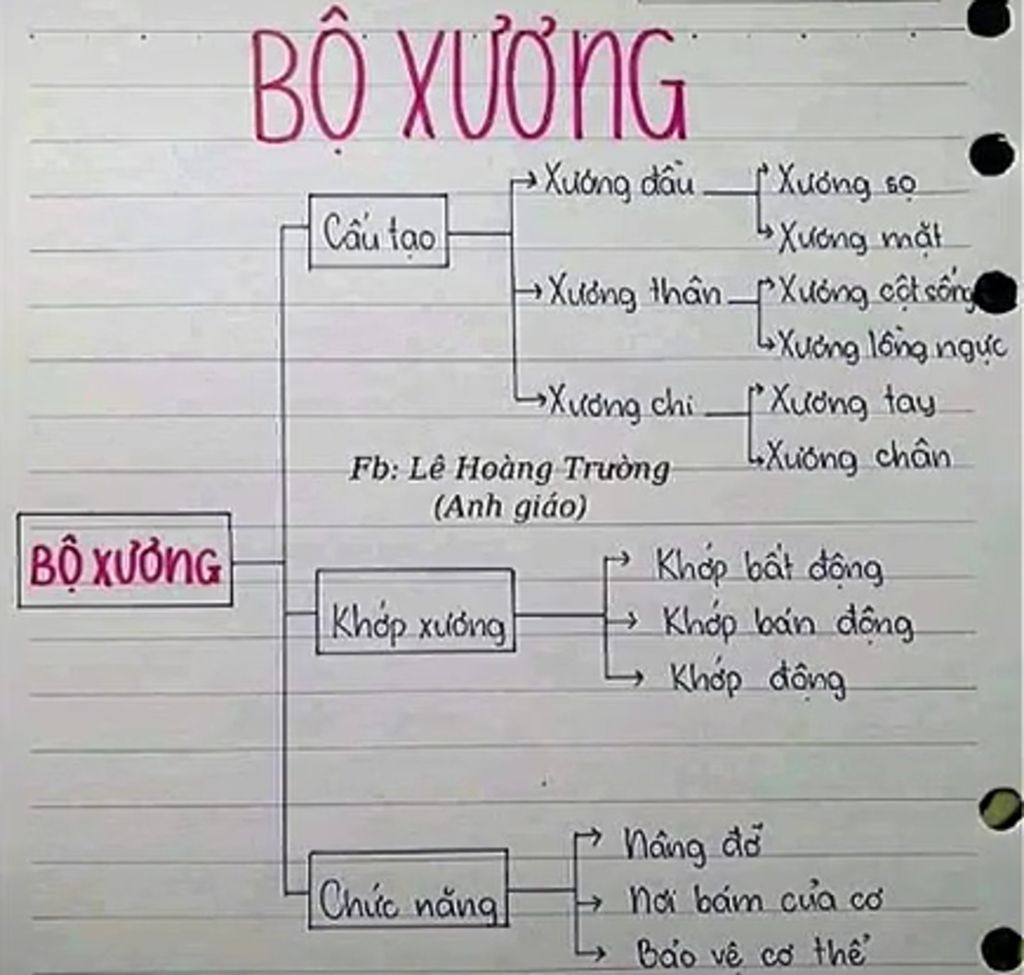 BỘ XƯƠNG
Cấu tạo
Xương đầu
Xương sọ
Xương mặt
Xương thân
Xương cột sống
Xương lồng ngực
Xương chi
Xương tay
Xương chân
Fb: Lê Hoàng Trường
(Anh giáo)
BỘ XƯƠNG
Khớp xương
Khớp bất động
Khớp bán động
Khớp động
Chức năng
Nâng đỡ
Nơi bám của cơ
Bảo vệ cơ thể